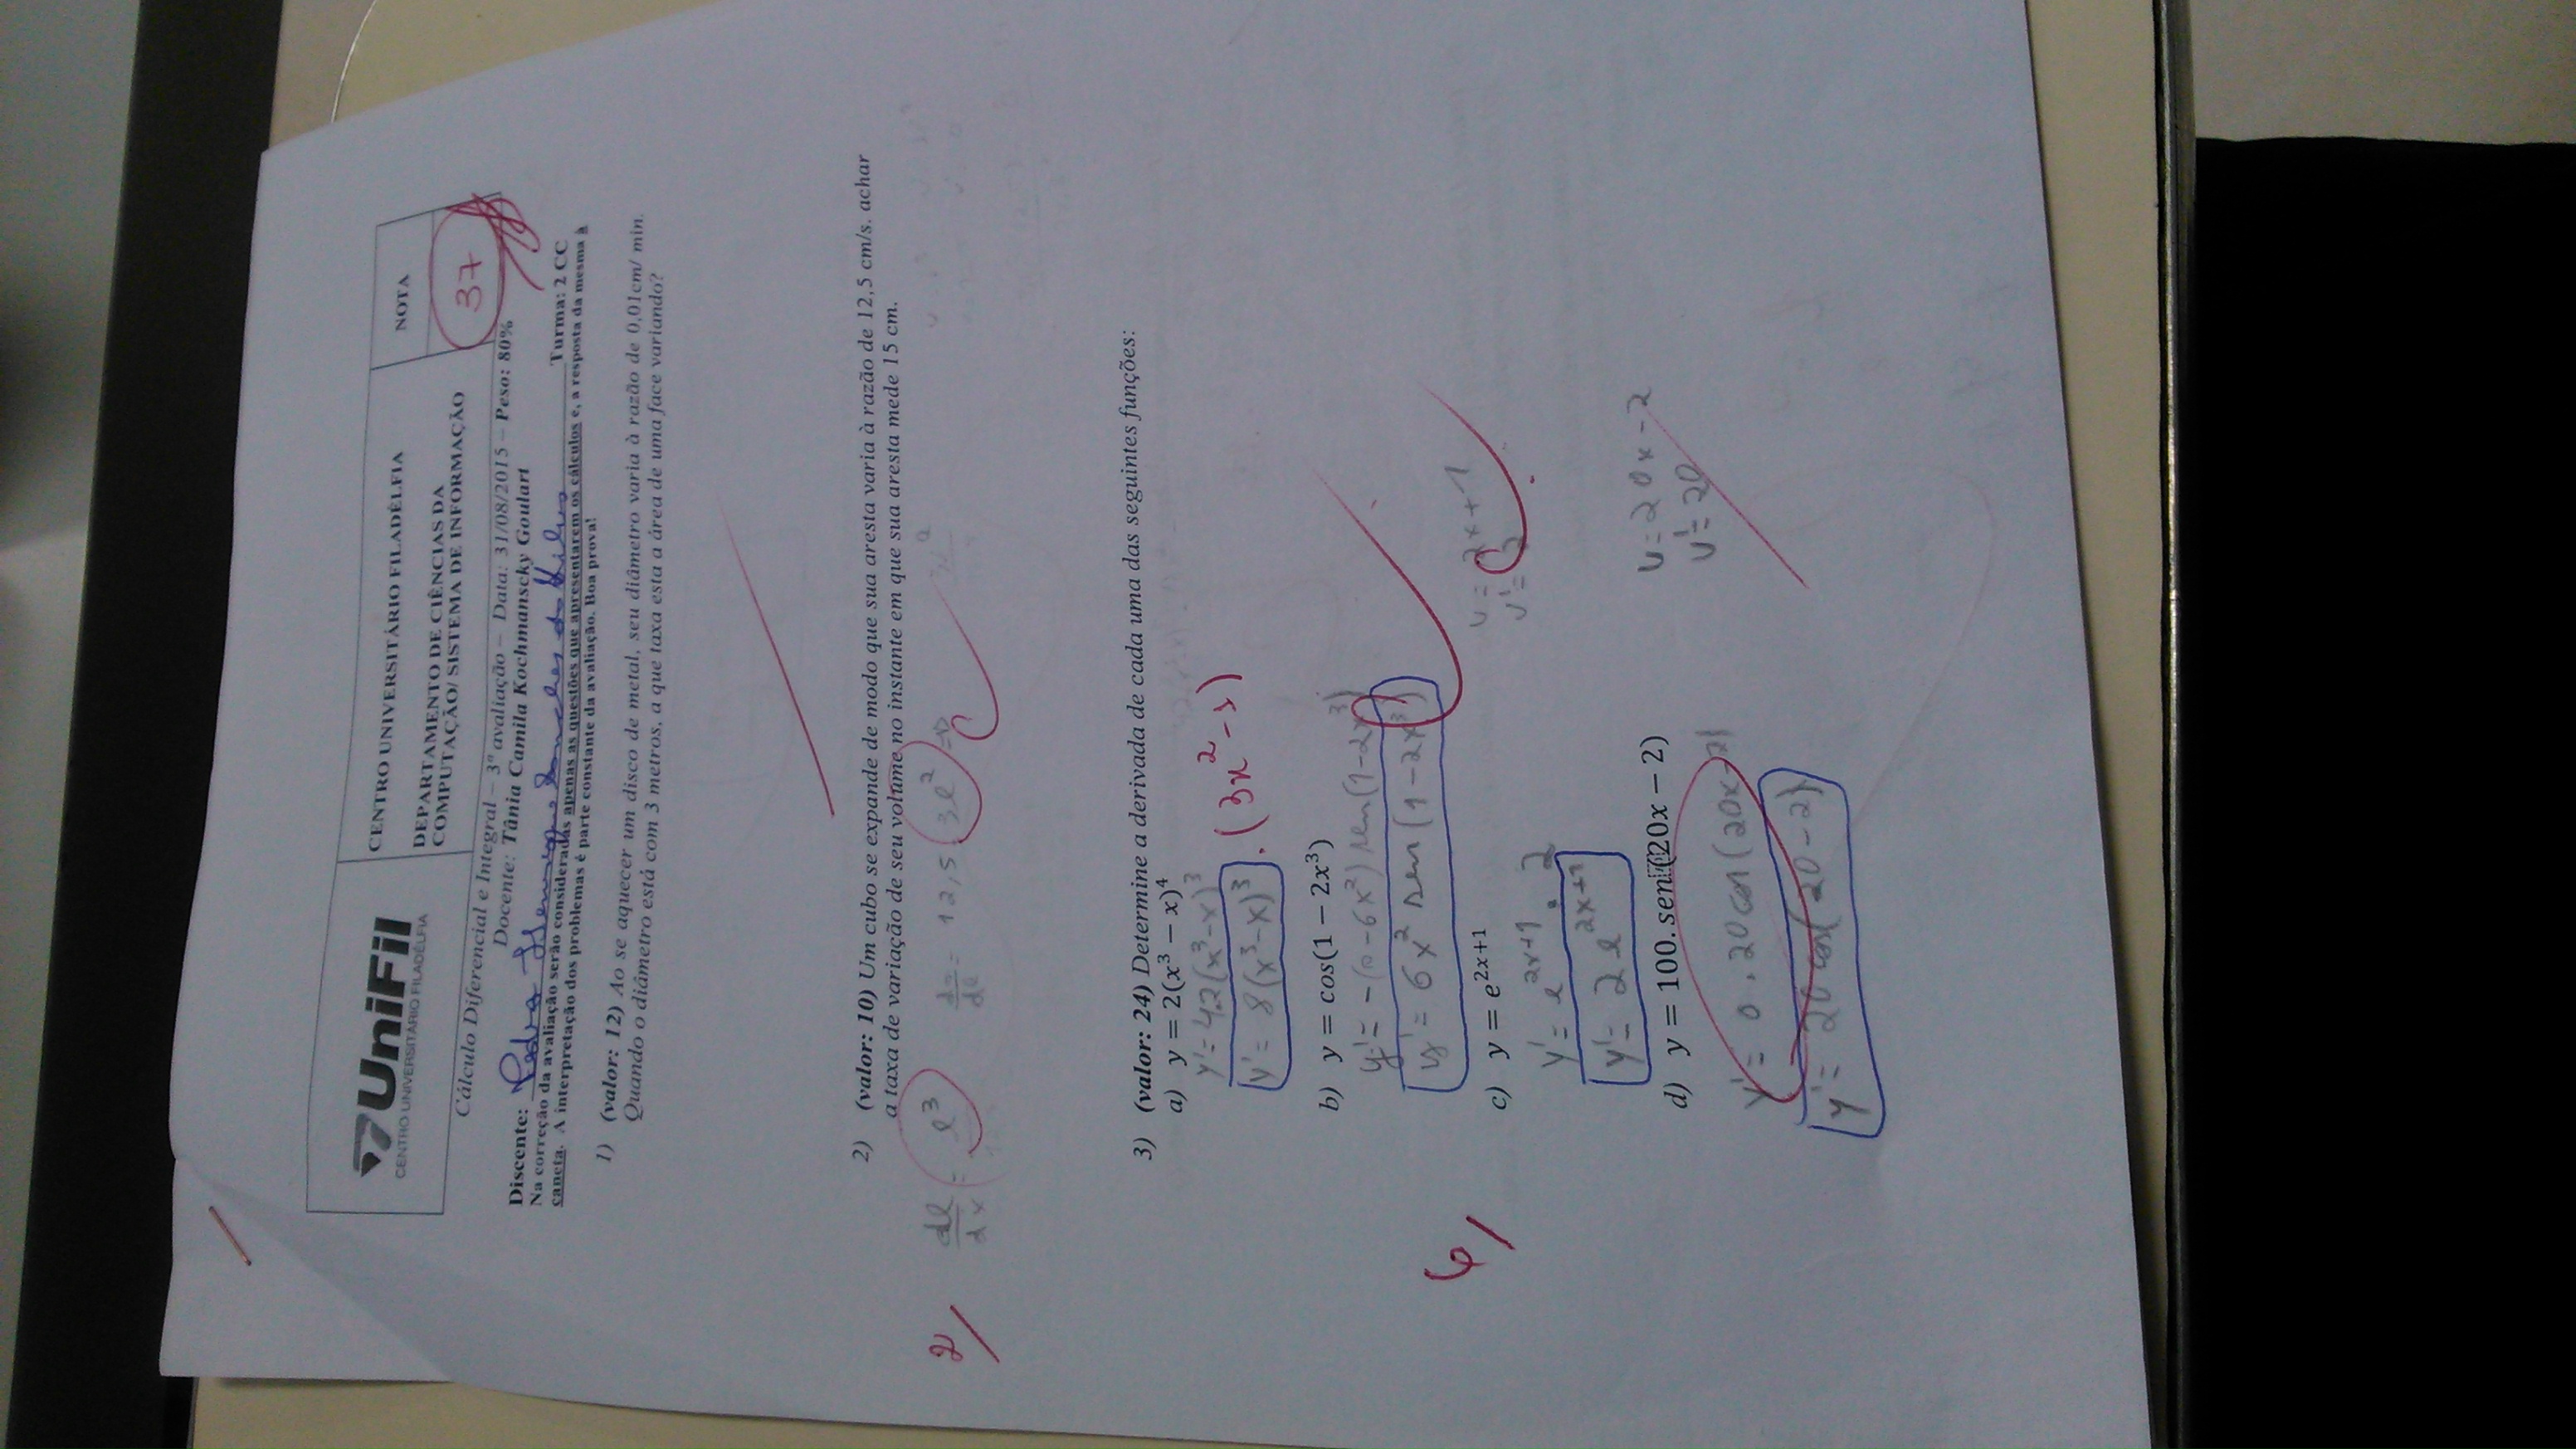 UniFil
CENTRO UNIVERSITÁRIO FILADÉLFIA
CENTRO UNIVERSITÁRIO FILADÉLFIA
DEPARTAMENTO DE CIÊNCIAS DA
COMPUTAÇÃO/ SISTEMA DE INFORMAÇÃO
NOTA
37
Cálculo Diferencial e Integral – 3ª avaliação – Data: 31/08/2015 – Peso: 80%
Docente: Tânia Camila Kochmanscky Goulart
Discente: Pedro Henrique Sanches da Silva Turma: 2 CC
Na correção da avaliação serão consideradas apenas as questões que apresentarem os cálculos e, a resposta da mesma à
caneta. A interpretação dos problemas é parte constante da avaliação. Boa prova!
1) (valor: 12) Ao se aquecer um disco de metal, seu diâmetro varia à razão de 0,01cm/ min.
Quando o diâmetro está com 3 metros, a que taxa esta a área de uma face variando?
2) (valor: 10) Um cubo se expande de modo que sua aresta varia à razão de 12,5 cm/s. achar
a taxa de variação de seu volume no instante em que sua aresta mede 15 cm.
2
dl/dx = l³ = 12,5 . 3l² =>
3) (valor: 24) Determine a derivada de cada uma das seguintes funções:
a) y = 2(x³ − x)⁴
y' = 4.2(x³-x)³
y' = 8(x³-x)³ . (3x²-1)
b) y = cos(1 − 2x³)
y' = -(0-6x²) sen(1-2x³)
y' = 6x² sen(1-2x³)
6
c) y = e²ˣ⁺¹
u = 2x+1
u' = 2
y' = e²ˣ⁺¹ . 2
y' = 2e²ˣ⁺¹
d) y = 100. sen (20x − 2)
u = 20x-2
u' = 20
y' = 0 . 20 cos(20x-2)
y' = 20 cos(20-2)